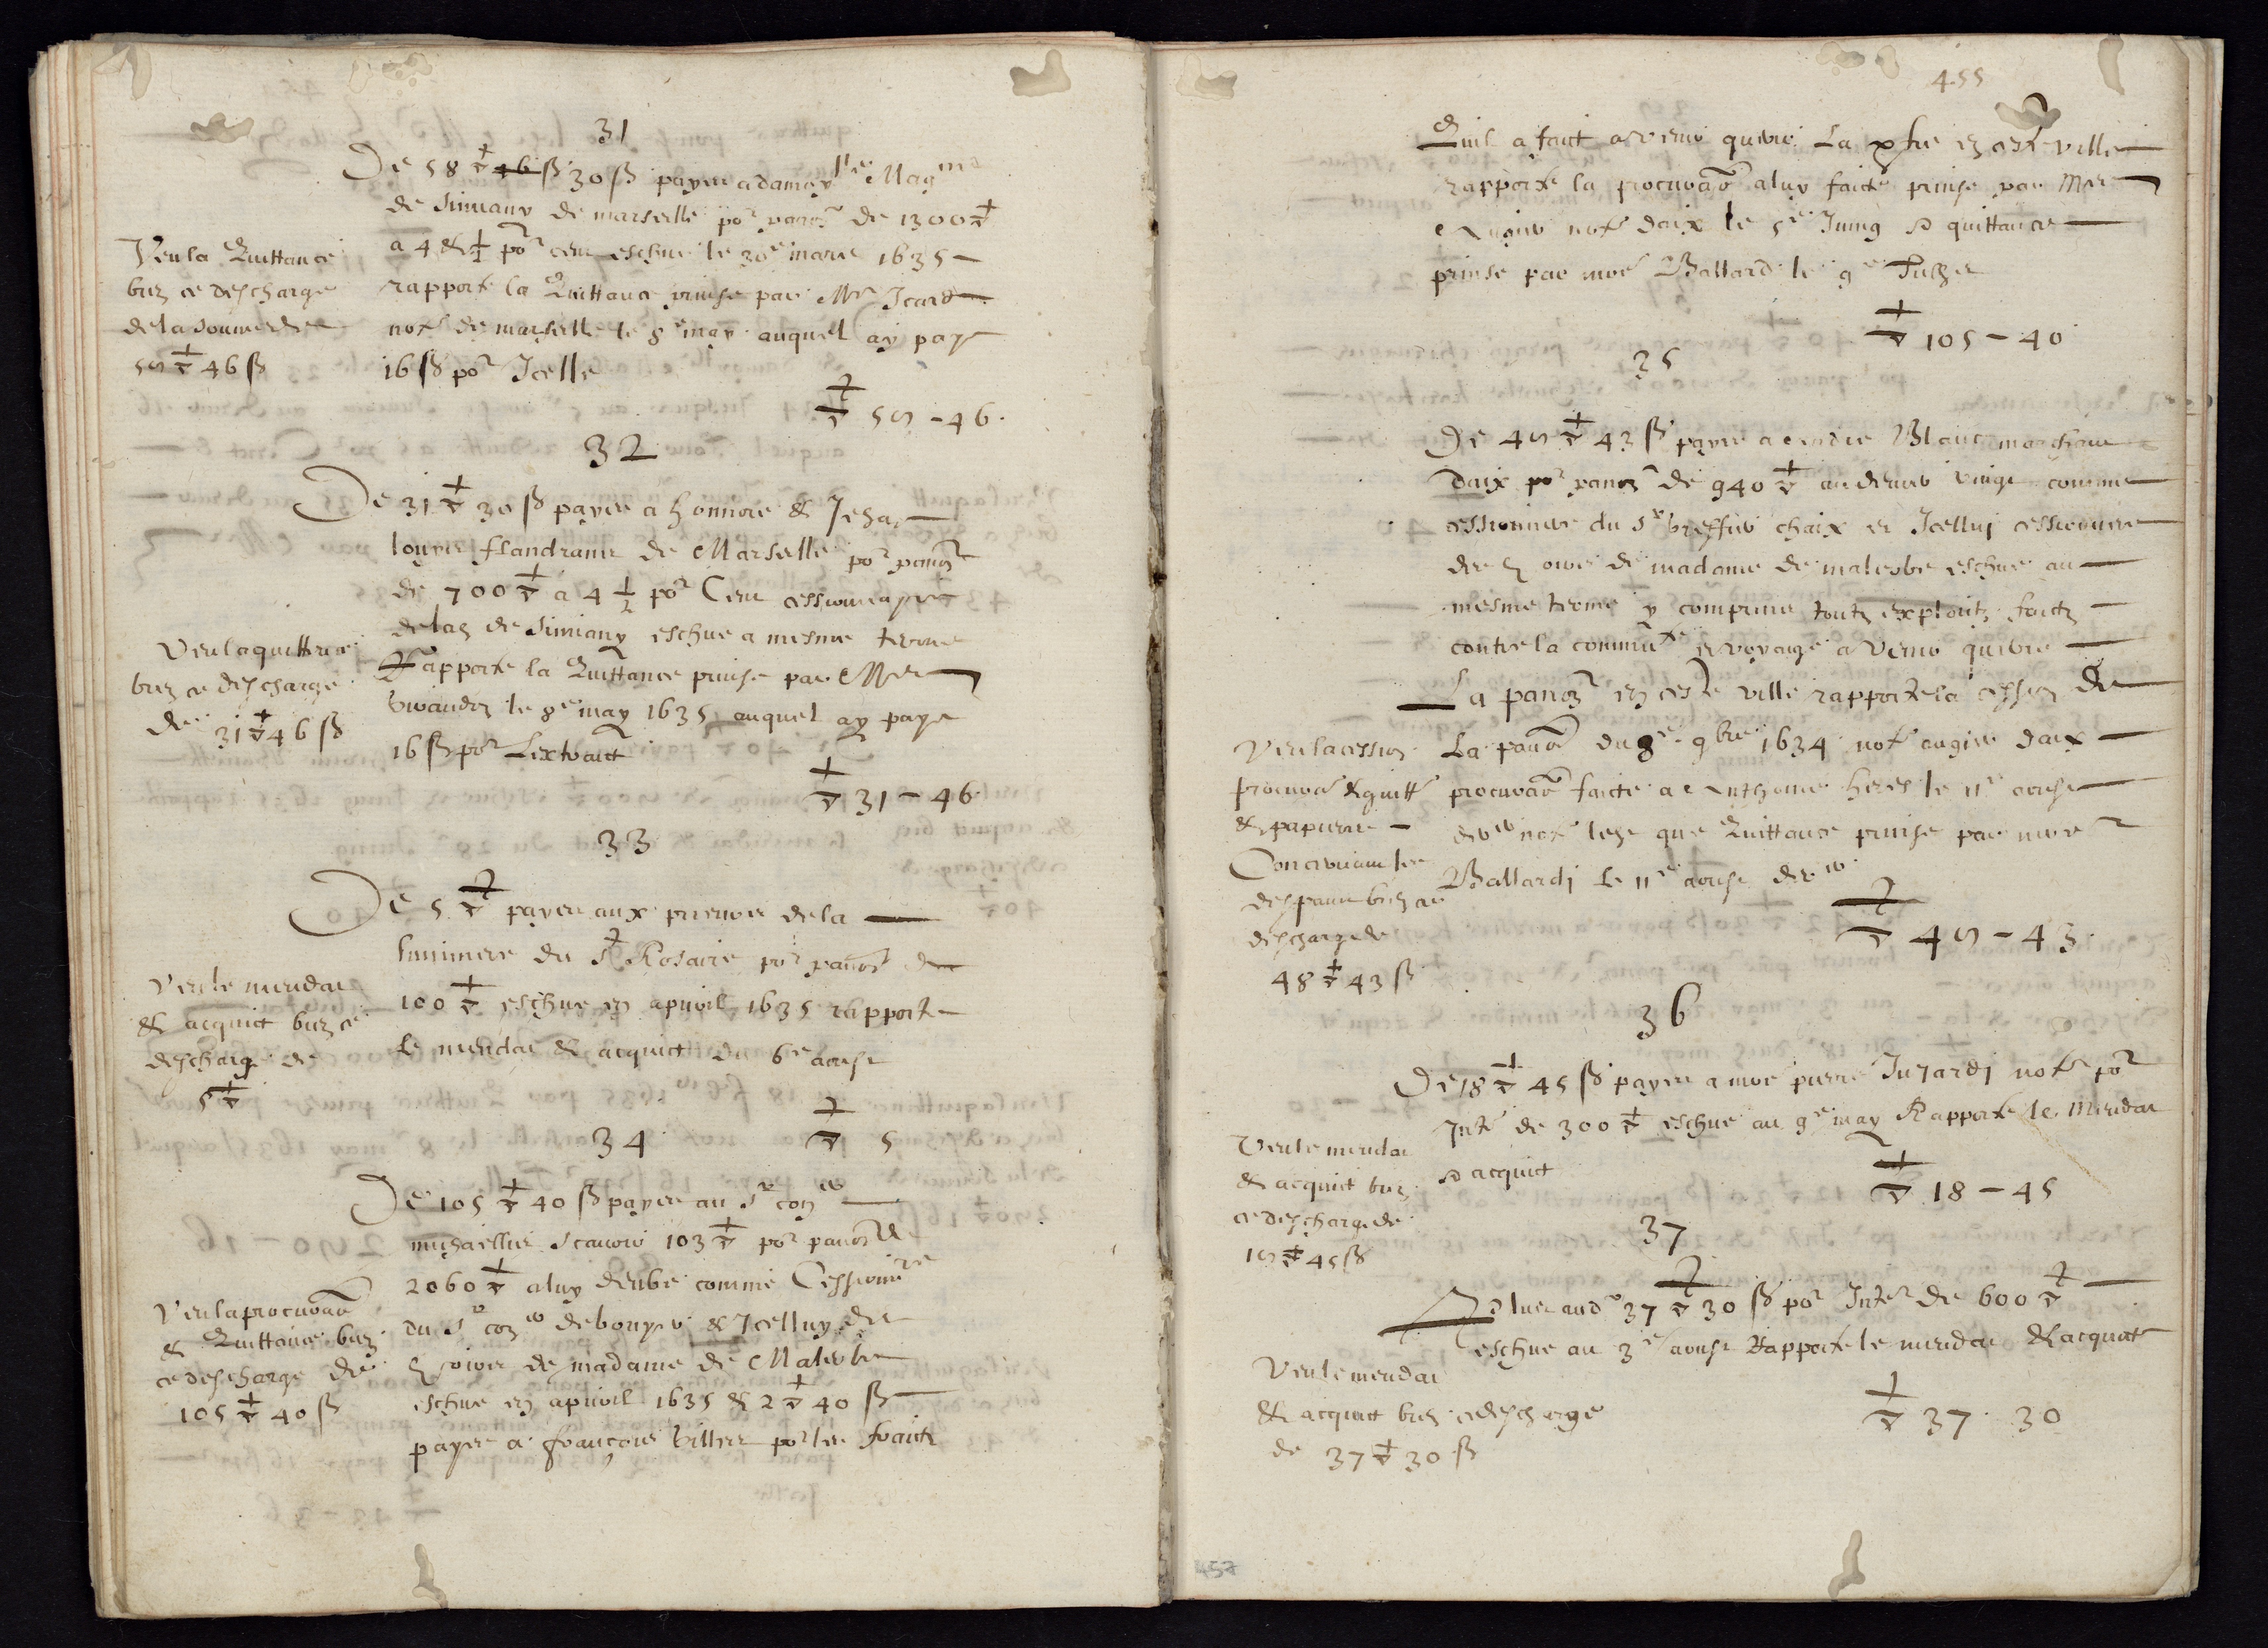 31
De 58 ▽ 46 ß 30 ß payes a damoy^lle Mag^ne
de Simiany de marseille po^r pan͠on de 1300 ▽
a 4 & ½ po^r cent eschue le 30e mars 1635
rapporte la Quittance prinse par M^e Icard
not^e de marseille le 8e may auquel ay paye
16 ß po^r Icelle
▽ 58 - 46
Veu la Quittance
bien se descharge
de la somme de
58 ▽ 46 ß
32
De 31 ▽ 30 ß payes a honnore & Jehan
louys flandranis de Marseille po^r pan͠on
de 700 ▽ a 4 ½ po^r Cent
de Simiany eschue a mesme terme
Rapporte la Quittance prinse par M^e
le 8e may 1635 auquel ay paye
16 ß po^r Lextraict
▽ 31 - 46
Veu la quittance
bien se descharge
de 31 ▽ 46 ß
33
De 5 ▽ payes aux prieures de la
luminere du S^t Rosaire po^r pan͠on de
100 ▽ eschue en apvril 1635 rapporte
le mendat & acquict du 6e aoust
▽ 5
Veu le mendat
& acquict bien se
descharge de
5 ▽
34
De 105 ▽ 40 ß payes au s^r con^er
103 ▽ po^r pan͠on de
2060 ▽ a luy deube comme Cessionn^re
du s^r con^er & Icelluy des
hoirs de madame de Malerbe
eschue en apvril 1635 & 2 ▽ 40 ß
payes a francois Villers po^r les fraictz
Veu la procura͠on
& Quittance bien
se descharge de
105 ▽ 40 ß
455
Quil a faict a venir querre La p͠nte en ceste ville
rapporte la procura͠on a luy faicte prinse par M^e
Augier not^e daix le 5e Juing & quittance
prinse par moe Ballard le 9e Juilhet
▽ 105 - 40
35
De 48 ▽ 43 ß payes a Andre Blanc marchant
daix po^r pan͠on de 940 ▽ au denier vingt comme
cessionnere du s^r chaix et Icelluj cessionnere
des hoirs de madame de malerbe eschue au
mesme terme y comprins toutz exploitz faictz
contre la commu^te et voyaige a venir querre
La pan͠on en ceste ville rapporte la cession de
La pan͠on du 8e 9bre 1634 not^e augier daix
procura͠on faicte a Anthoine heres le 11e aoust
not^e que Quittance prinse par moe
Ballardj le 11e aoust
▽ 48 - 43
Veu la cession
procura^on & quitt^e
& papiers
Concernant les
despans bien se
descharge de
48 ▽ 43 ß
36
De 18 ▽ 45 ß payes a moe pierre Juzardj not^e po^r
Int^e de 300 ▽ eschue au 9e may Rapporte le Mendat
& acquict
▽ 18 - 45
Veu le mendat
& acquict bien
se descharge de
18 ▽ 45 ß
37
& plus aud^t 37 ▽ 30 ß po^r Inte^r de 600 ▽
eschue au 3e aoust Rapporte le mendat & acquict
▽ 37 30
Veu le mendat
& acquict bien se descharge
de 37 ▽ 30 ß
457